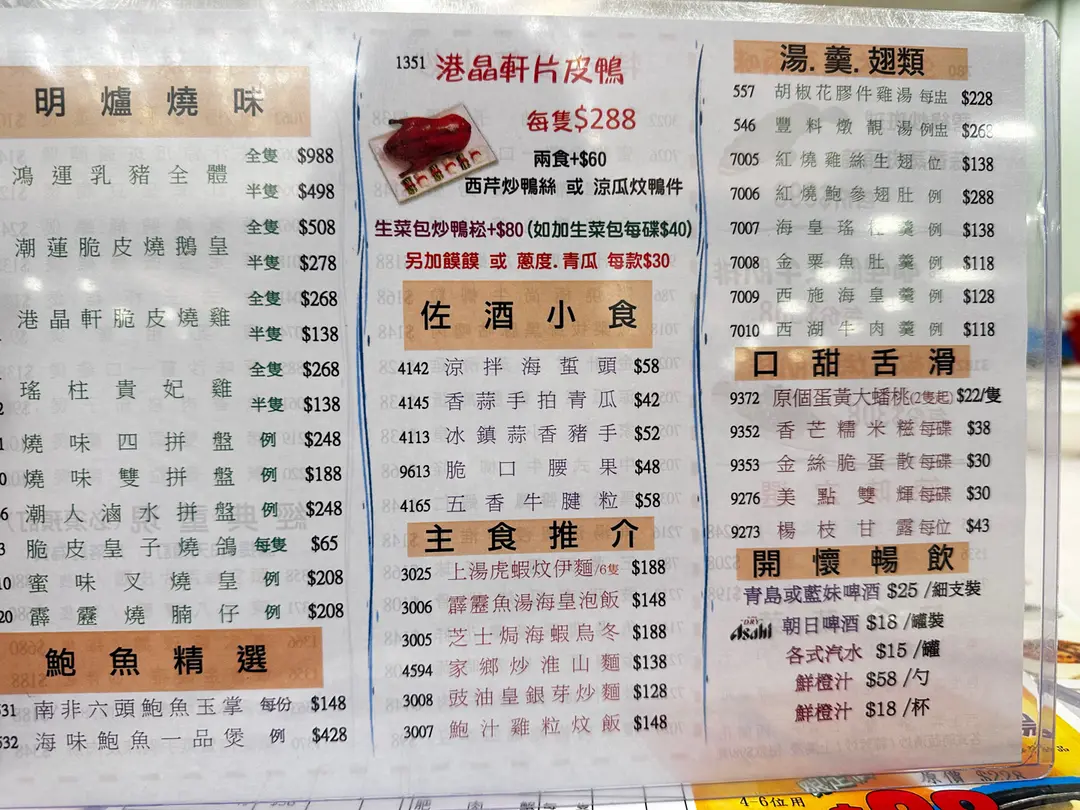 明爐燒味
鴻運乳豬全體 全隻 $988
半隻 $498
潮蓮脆皮燒鵝皇 全隻 $508
半隻 $278
港晶軒脆皮燒雞 全隻 $268
半隻 $138
瑤柱貴妃雞 全隻 $268
半隻 $138
燒味四拼盤 例 $248
燒味雙拼盤 例 $188
潮人滷水拼盤 例 $248
脆皮皇子燒鴿 每隻 $65
蜜味叉燒皇 例 $208
霹靂燒腩仔 例 $208
鮑魚精選
南非六頭鮑魚玉掌 每份 $148
海味鮑魚一品煲 例 $428
1351 港晶軒片皮鴨
每隻$288
兩食+$60
西芹炒鴨絲 或 涼瓜炆鴨件
生菜包炒鴨崧+$80 (如加生菜包每碟$40)
另加饃饃 或 蔥度.青瓜 每款$30
佐酒小食
4142 涼拌海蜇頭 $58
4145 香蒜手拍青瓜 $42
4113 冰鎮蒜香豬手 $52
9613 脆口腰果 $48
4165 五香牛腱粒 $58
主食推介
3025 上湯虎蝦炆伊麵/6隻 $188
3006 霹靂魚湯海皇泡飯 $148
3005 芝士焗海蝦烏冬 $188
4594 家鄉炒淮山麵 $138
3008 豉油皇銀芽炒麵 $128
3007 鮑汁雞粒炆飯 $148
湯.羹.翅類
557 胡椒花膠件雞湯 每盅 $228
546 豐料燉靚湯 例盅 $268
7005 紅燒雞絲生翅 位 $138
7006 紅燒鮑參翅肚 例 $288
7007 海皇瑤柱羹 例 $138
7008 金粟魚肚羹 例 $118
7009 西施海皇羹 例 $128
7010 西湖牛肉羹 例 $118
口甜舌滑
9372 原個蛋黃大蟠桃(2隻起) $22/隻
9352 香芒糯米糍 每碟 $38
9353 金絲脆蛋散 每碟 $30
9276 美點雙輝 每碟 $30
9273 楊枝甘露 每位 $43
開懷暢飲
青島或藍妹啤酒 $25 /細支裝
Asahi 朝日啤酒 $18 /罐裝
各式汽水 $15 /罐
鮮橙汁 $58 /勺
鮮橙汁 $18 /杯
原價 $228
4-6位用